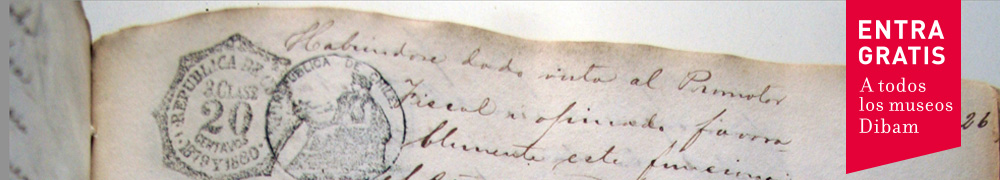 Habiendose dado vista al Promotor
Fiscal y opinado favora-
blemente este funcion
26
REPUBLICA DE C
3 CLASE
20
CENTAVOS
1879 Y 1880
REPUBLICA DE CHILE
ENTRA
GRATIS
A todos
los museos
Dibam